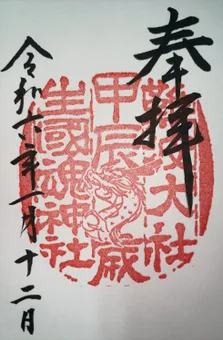 奉拝
難波大社
甲辰歳
生國魂神社
令和六年一月十二日